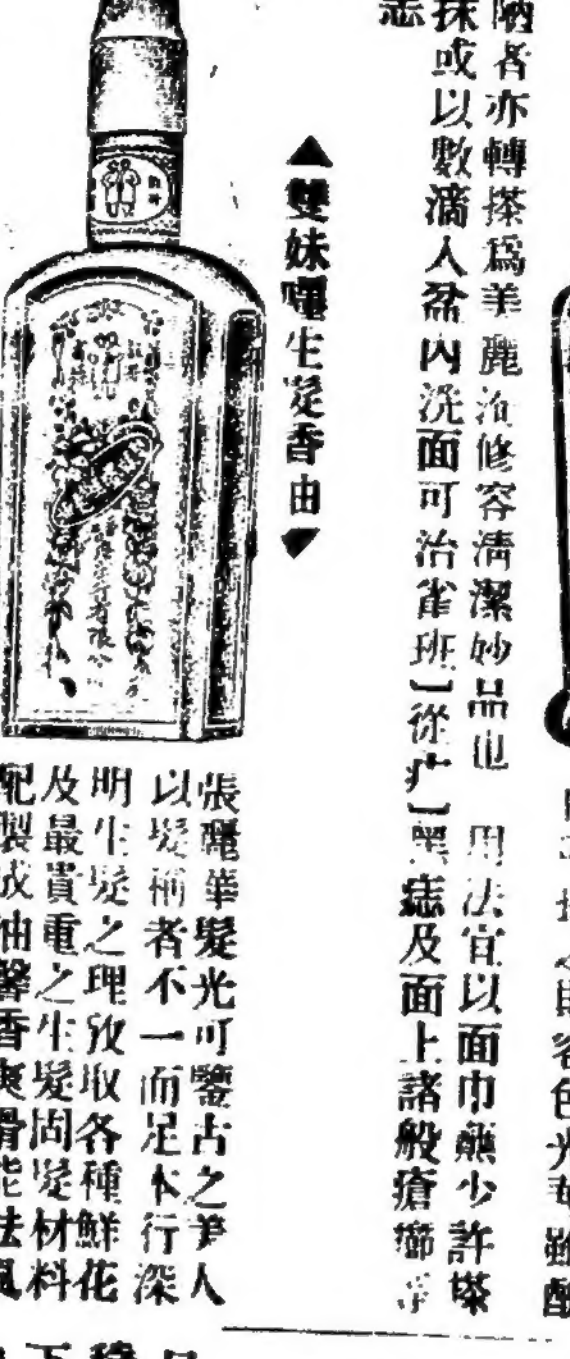 容色光華雖醜
陋者亦轉搽爲美麗洵修容清潔妙品也　用法宜以面巾蘸少許搽
抹或以數滴入盆內洗面可治雀斑〔從疒〕黑痣及面上諸般瘡癤
痣
▲雙妹嚜生髮香油▼
張麗華髮光可鑒古之美人
以髮稱者不一而足本行深
明生髮之理攷取各種鮮花
及最貴重之生髮固髮材料
配製成油馨香爽滑能祛風